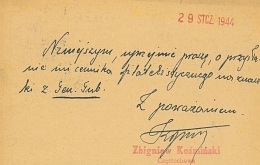 29 STCZ. 1944
Niniejszym, uprzejmie proszę, o przysła-
nie mi cennika filatelistycznego na znacz-
ki z Gen. Gub.
Z poważaniem
Zbigniew Koźmiński